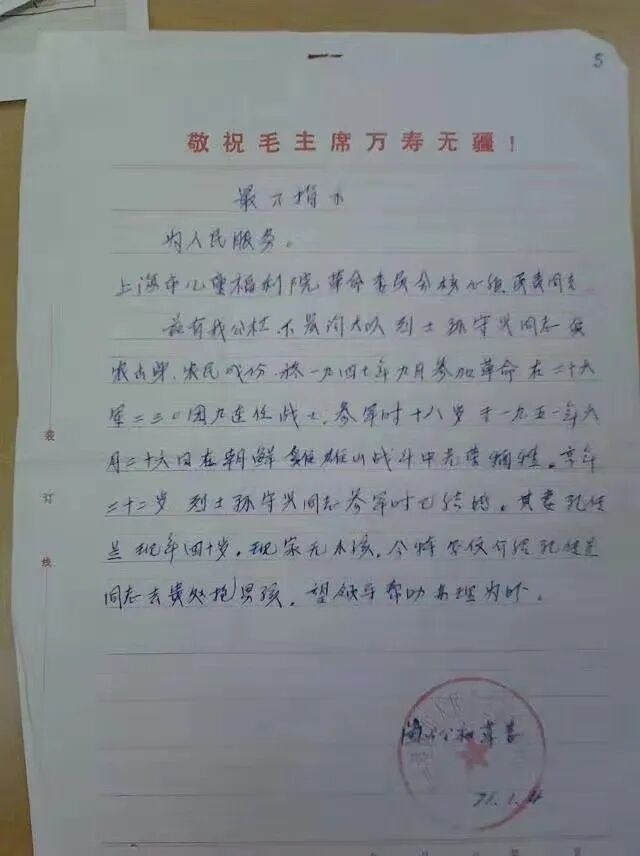 5
敬祝毛主席万寿无疆！
最高指示
为人民服务。
上海市儿童福利院革命委员会核心组负责同志
兹有我公社 大队烈士孙守兴同志 
农出身、农民成份、於一九四七年九月参加革命在二十六
军二三〇团九连任战士、参军时十八岁于一九五一年六
月二十六日在朝鲜 雄山战斗中光荣牺牲。享年
二十二岁 烈士孙守兴同志参军时已结婚。其妻孔使
兰现年四十岁。现家无小孩。今特写仅介绍孔使兰
同志去贵处抱男孩，望领导帮助办理为盼。
公社革委
71.1.4
装
订
线